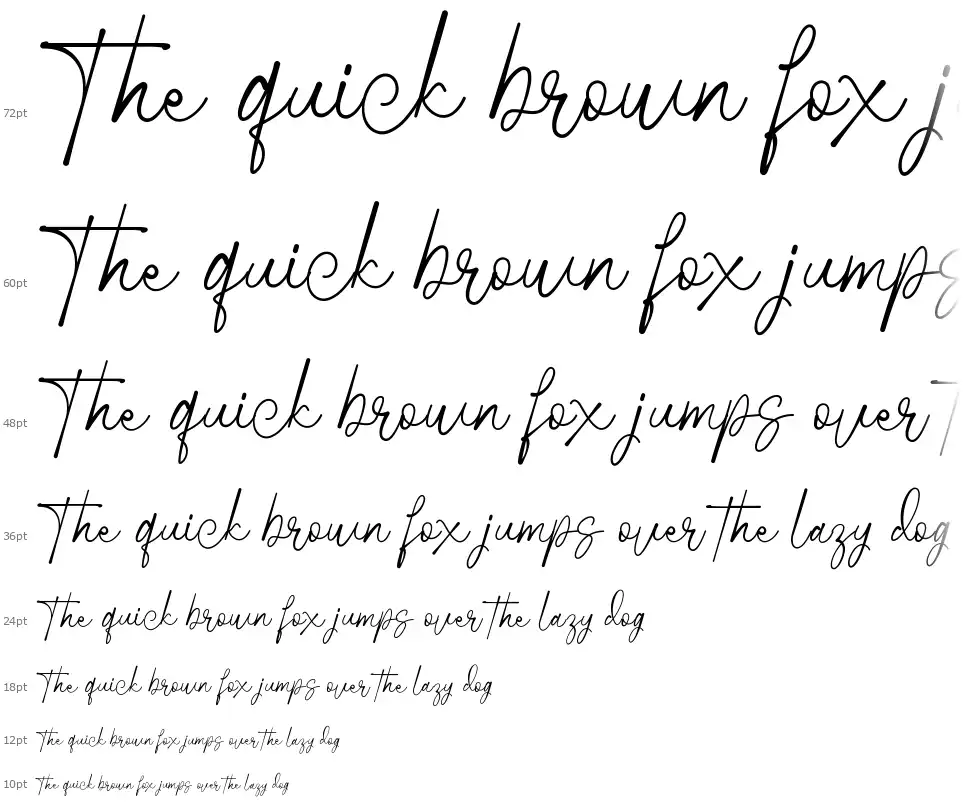 72pt The quick brown fox j
60pt The quick brown fox jumps
48pt The quick brown fox jumps over T
36pt The quick brown fox jumps over the lazy dog
24pt The quick brown fox jumps over the lazy dog
18pt The quick brown fox jumps over the lazy dog
12pt The quick brown fox jumps over the lazy dog
10pt The quick brown fox jumps over the lazy dog